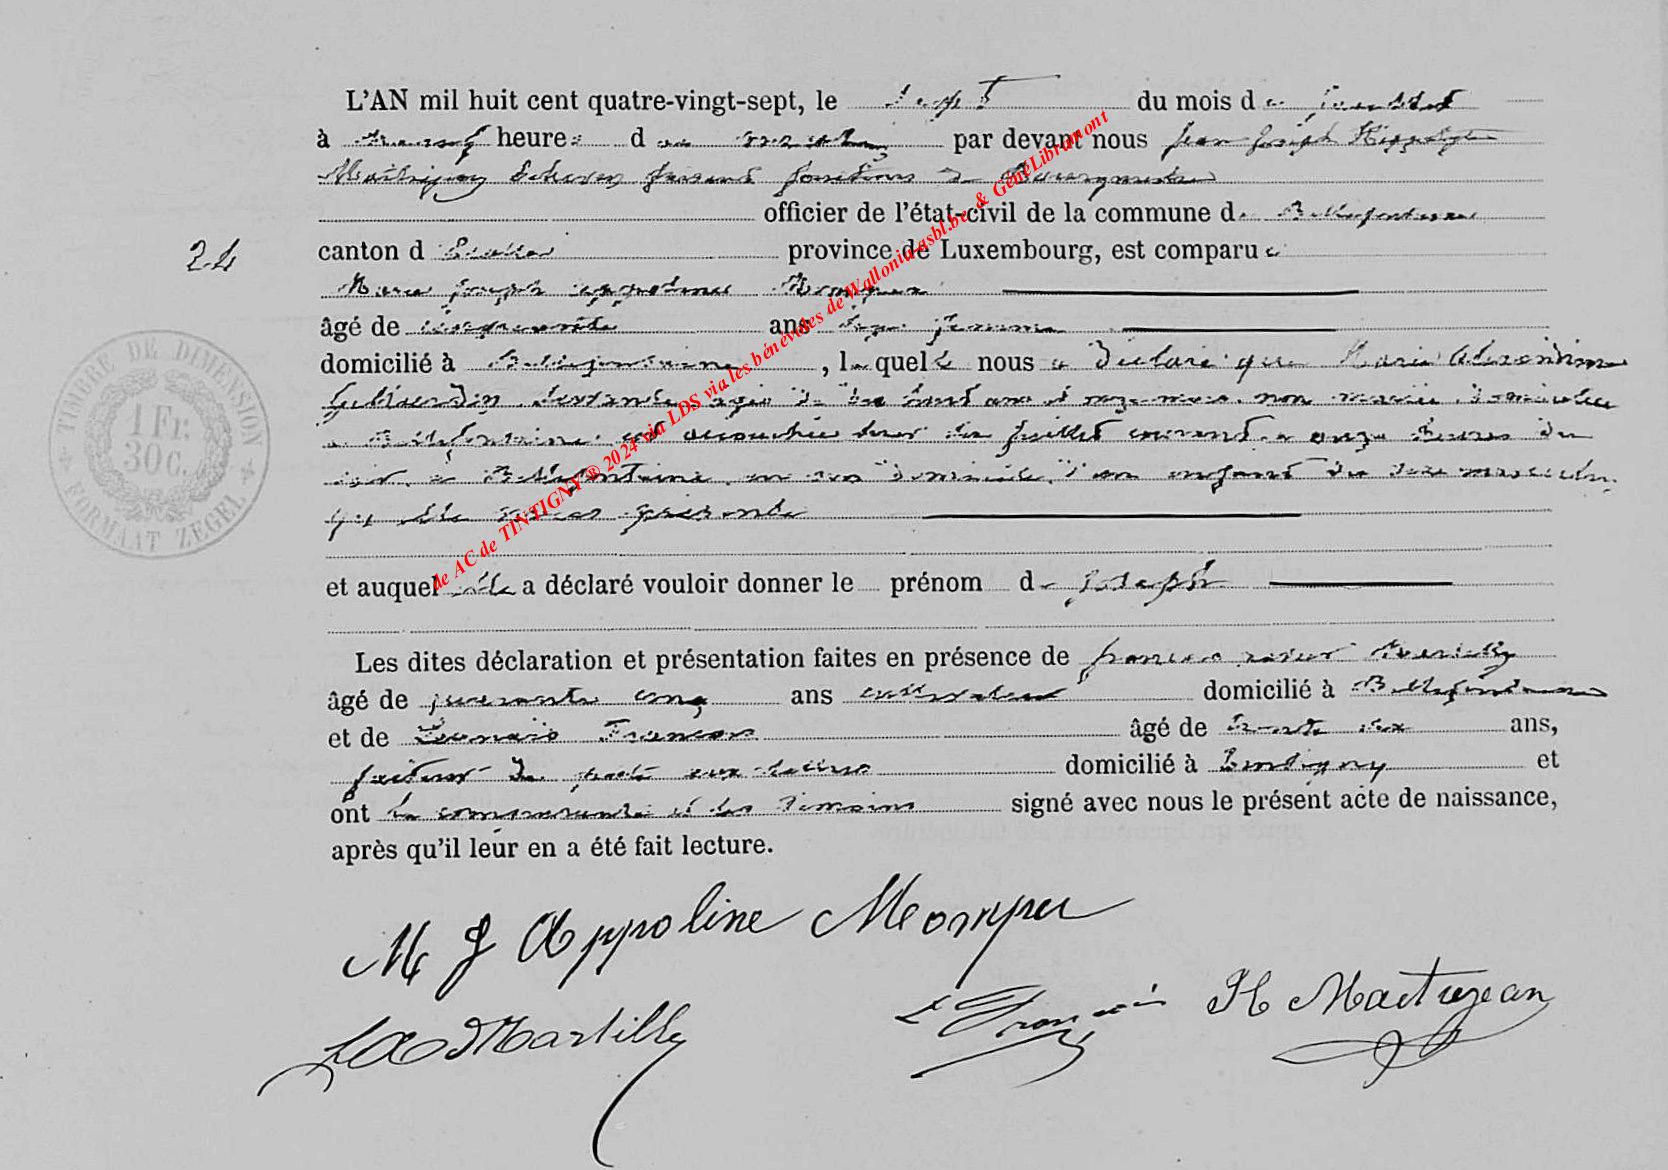 L'AN mil huit cent quatre-vingt-sept, le sept du mois de Juillet
à neuf heures du matin par devant nous Jean Joseph Hippolyte
Maitrejean Echevin faisant fonctions de Bourgmestre
officier de l'état-civil de la commune de Bellefontaine
24
canton d'Etalle province de Luxembourg, est comparue
Marie Joseph appoline Momper
âgé de cinquante ans sage femme
domicilié à Bellefontaine, laquelle nous a déclaré que Marie
servante, âgée de ans et onze mois, non mariée, domiciliée
à Bellefontaine, est accouchée hier six Juillet courant, à onze heures du
soir, à Bellefontaine, en son domicile, d'un enfant du sexe masculin,
qu'elle nous présente
et auquel elle a déclaré vouloir donner le prénom de Joseph
Les dites déclaration et présentation faites en présence de françois xavier Martilly
âgé de quarante cinq ans cultivateur domicilié à Bellefontaine
et de François âgé de trente six ans,
facteur de poste aux lettres domicilié à Tintigny et
ont la comparante et les témoins signé avec nous le présent acte de naissance,
après qu'il leur en a été fait lecture.
M J Appoline Momper
Martilly
L François
H Maitrejean
TIMBRE DE DIMENSION
1 Fr.
30 C.
FORMAAT ZEGEL
de AC de TINTIGNY ® 2024 via LDS via les bénévoles de Wallonia-asbl.be & GénéLibramont